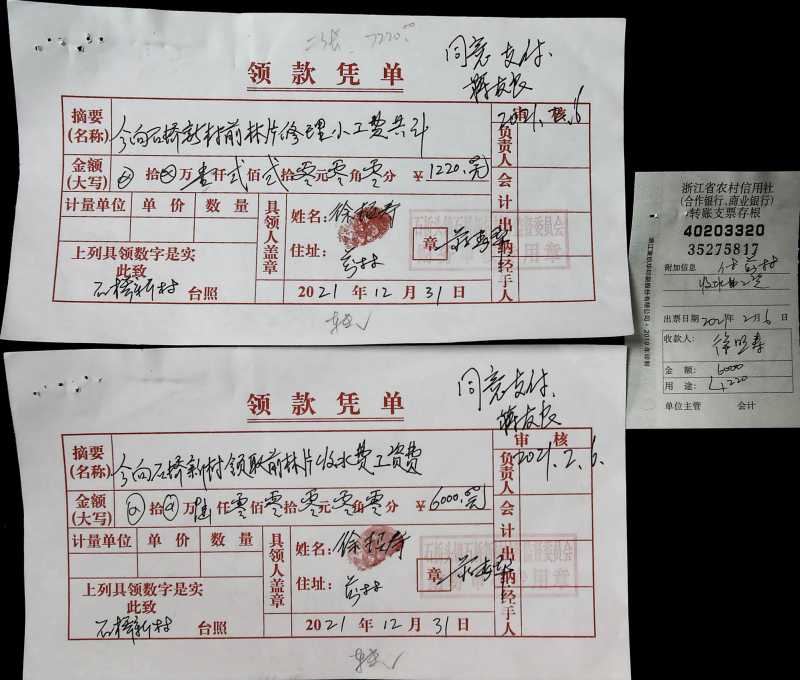 二张 7220.00
同意支付
领款凭单
2021.2.6
摘要
(名称)
今向石桥新村前林片修理小工费共计
审核
负责人
金额
(大写)
拾 万壹仟贰佰贰拾零元零角零分 ¥1220.元
会计
计量单位 单价 数量
具领人盖章
姓名:徐
住址:前林
章
出纳
经手人
上列具领数字是实
此致
石桥新村 台照
2021年12月31日
浙江省农村信用社
(合作银行、商业银行)
转账支票存根
40203320
35275817
附加信息 付前林
收水费工资
出票日期 2021年2月6日
收款人:
徐
金额: 6000
用途: 1220
单位主管 会计
同意支付
领款凭单
摘要
(名称)
今向石桥新村领取前林片收水费工资费
审核
2021.2.6.
负责人
金额
(大写)
拾 万陆仟零佰零拾零元零角零分 ¥6000.元
会计
计量单位 单价 数量
具领人盖章
姓名:徐
住址:前林
章
出纳
经手人
上列具领数字是实
此致
石桥新村 台照
2021年12月31日